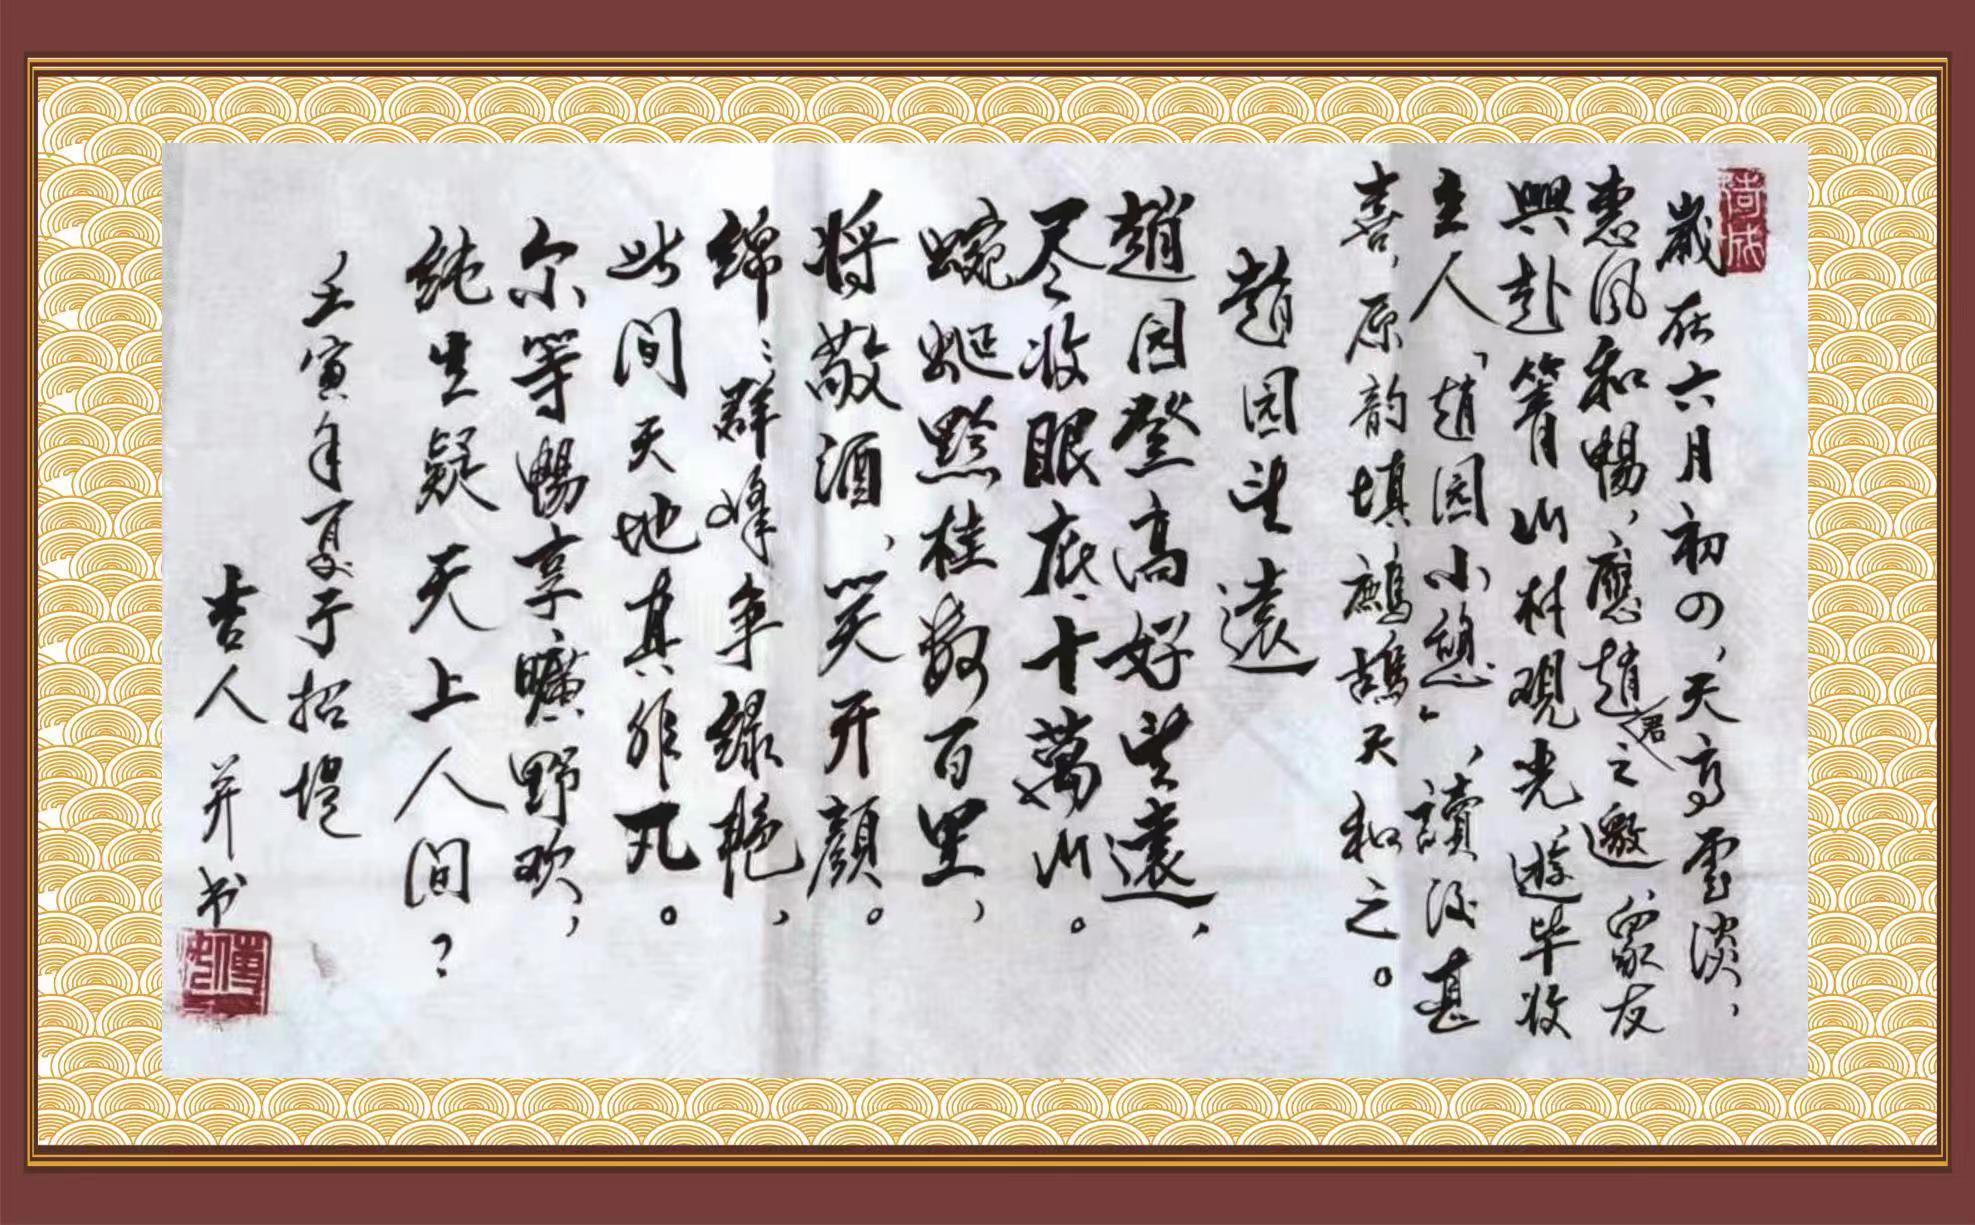 歲在六月初四,天高雲淡,
惠風和暢,應趙君之邀,眾友
興赴箐山村观光,遊毕收
主人「趙园小憩」,讀後甚
喜,原韵填鹧鸪天和之。
趙园望遠
趙园登高好望遠,
尽收眼底十萬山。
蜿蜒黔桂数百里,
将敬酒,笑开顔。
绵〻群峰争緑艳,
此间天地真非凡。
尔等暢享曠野欢,
纯生疑天上人间?
壬寅年夏于招堤
吉人并书